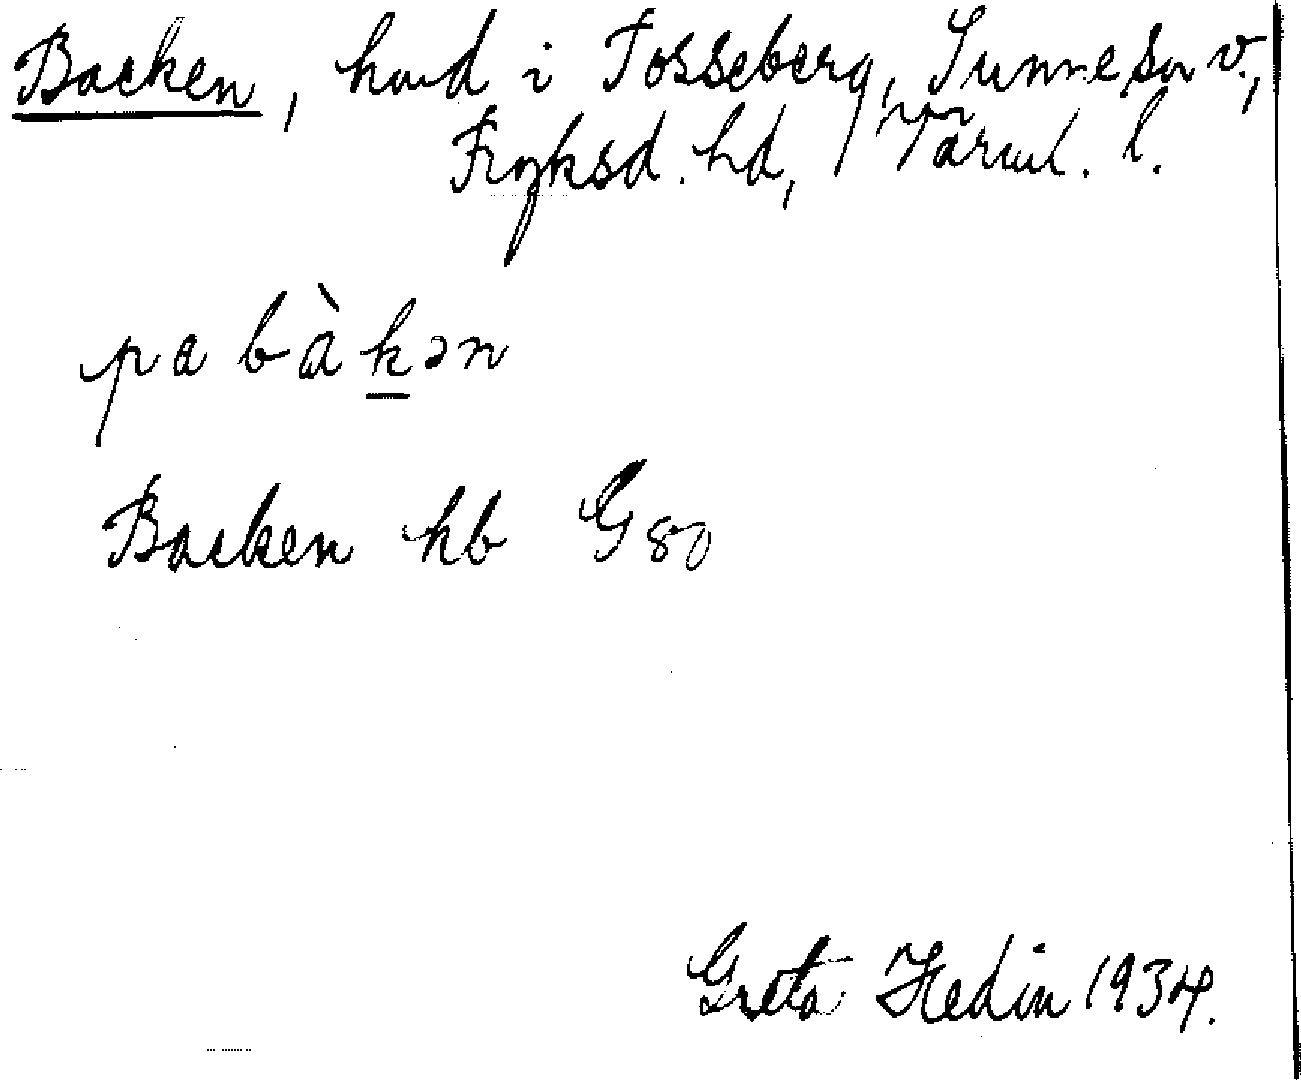 Backen, hmd i Tosseberg, Sunne sn v.,
Fryksd. hd, Värml. l.
pa bàkən
Backen hb G 80
Greta Hedin 1934.